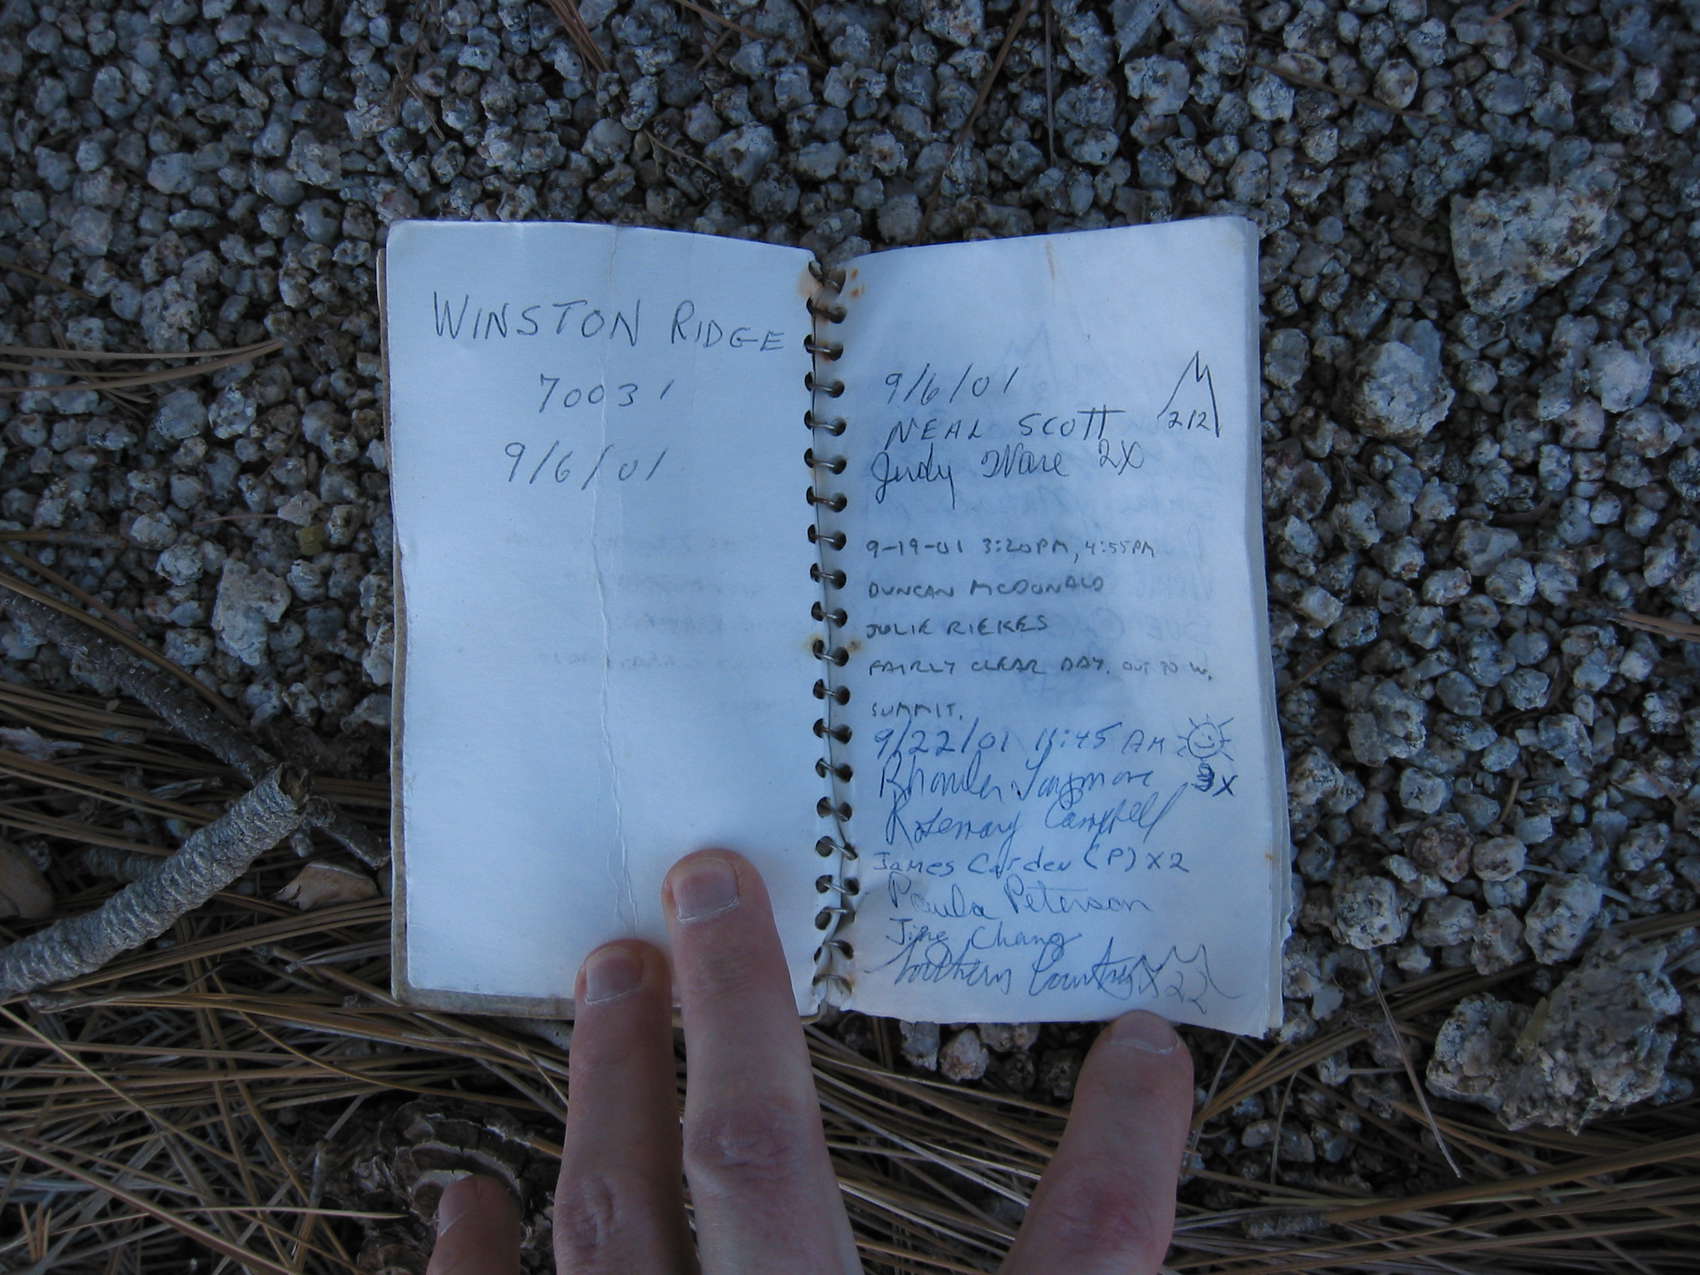 WINSTON RIDGE
70031
9/6/01
9/6/01
NEAL SCOTT 212
Judy Ware 2X
9-19-01 3:20PM, 4:55PM
DUNCAN MCDONALD
JULIE RIEKES
FAIRLY CLEAR DAY. OUT TO W.
SUMMIT.
9/22/01 11:45 AM
X
Rosemary Campbell
James Carden (P) X2
Paula Peterson
Chang